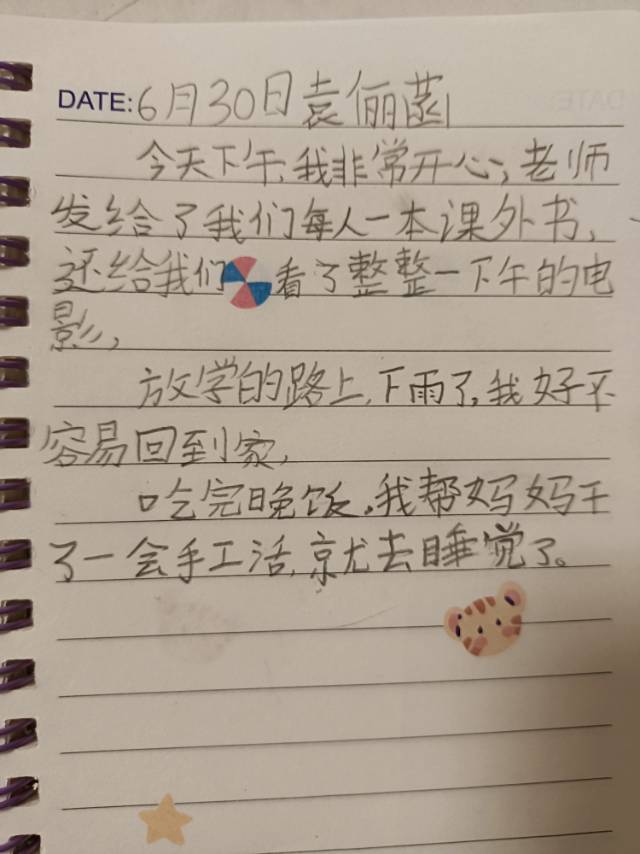 DATE:6月30日袁俪菡
今天下午,我非常开心,老师
发给了我们每人一本课外书,
还给我们看了整整一下午的电
影,
放学的路上,下雨了,我好不
容易回到家,
吃完晚饭,我帮妈妈干
了一会手工活,就去睡觉了。